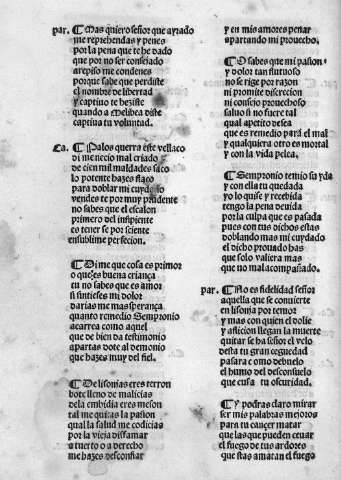 par. ¶ Mas quiero señor que ayrado
me reprehendas y penes
por la pena que te he dado
que por no ser consejado
arepiso me condenes
porque sabe que perdiste
el nombre de libertad
y captiuo te heziste
quando a Melibea diste
captiua tu voluntad.
Ca. ¶ Palos querra este vellaco
di me necio mal criado
de cien mil maldades saco
lo potente hazes flaco
para doblar mi cuydado
vendes te por muy prudente
no sabes que el escalon
primero del insipiente
es tener se por sciente
en sublime perfecion.
¶ Di me que cosa es primor
o que es buena criança
tu no sabes que es amor
si sintieses mi dolor
darias me mas sperança
quanto remedio Sempronio
acarrea como aquel
que de bien da testimonio
apartas dote al demonio
que hazes muy del fiel.
¶ De lisonjas eres terron
bote lleno de malicias
de la embidia eres meson
tal me quitas la passion
qual la salud me codicias
por la vieja disfamar
a tuerto o a derecho
me hazes desconfiar
y en mis amores penar
apartando mi prouecho.
¶ O sabes que mi passion
y dolor tan flutuoso
no se rige por razon
ni promite discrecion
ni consejo prouechoso
saluo si no fuere tal
qual apetito desea
que es remedio para el mal
y qualquiera otro es mortal
y con la vida pelea.
¶ Sempronio temio su yda
y con ella tu quedada
yo lo quise y recebida
tengo la pena deuida
por la culpa que es pasada
pues con tus dichos estas
doblando mas mi cuydado
el dicho prouado has
que solo valiera mas
que no mal acompañado.
par. ¶ No es fidelidad señor
aquella que se conuierte
en lisonja por temor
y mas con quien el dolor
y aflicion llegan la muerte
quitar se ha señor el velo
desta tu gran ceguedad
pasara como debuelo
el humo del desconsuelo
que cusa tu oscuridad.
¶ Y podras claro mirar
ser mis palabras mejores
para tu cancer matar
que las que pueden ceuar
el fuego de tus ardores
que stas amatan el fuego